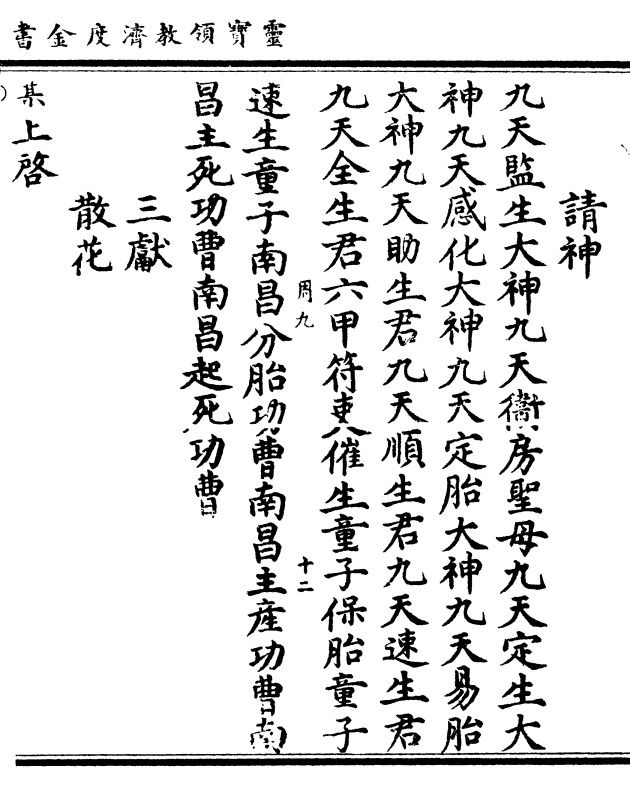 靈寶領教濟度金書
請神
九天監生大神九天衞房聖母九天定生大
神九天感化大神九天定胎大神九天易胎
大神九天助生君九天順生君九天速生君
九天全生君六甲符吏催生童子保胎童子
周九
十二
速生童子南昌分胎功曹南昌主產功曹南
昌主死功曹南昌起死功曹
三獻
散花
某上啓